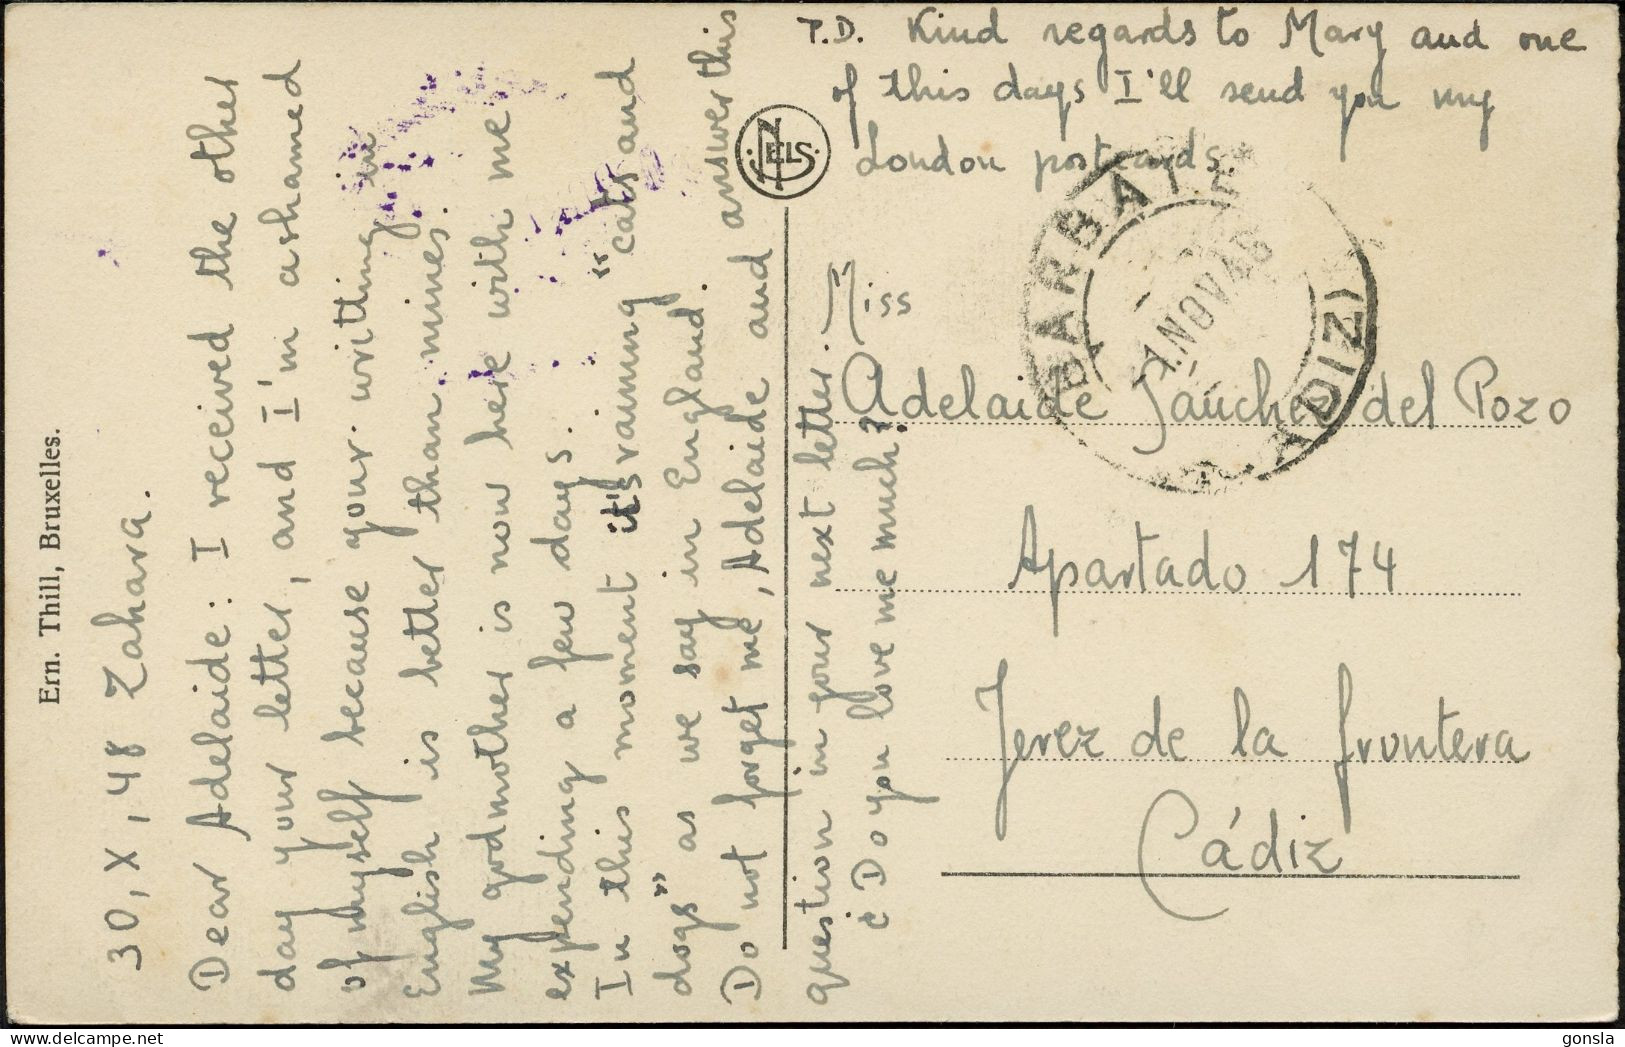 Ern. Thill, Bruxelles.
30, X, 48 Zahara.
Dear Adelaide: I received the other
day your letter, and I'm ashamed
of myself because your writting in
English is better than mines.
My godmother is now here with me
expending a few days.
In this moment it's rainning "cats and
dogs" as we say in England.
Do not forget me, Adelaide and answer this
question in your next letter.
¿Do you love me much?
P.D. Kind regards to Mary and one
of this days I'll send you my
London postcards.
NELS
BARBATE
(CADIZ)
1 NOV 48
Miss
Adelaide Sanchez del Pozo
Apartado 174
Jerez de la frontera
Cádiz
gonsla